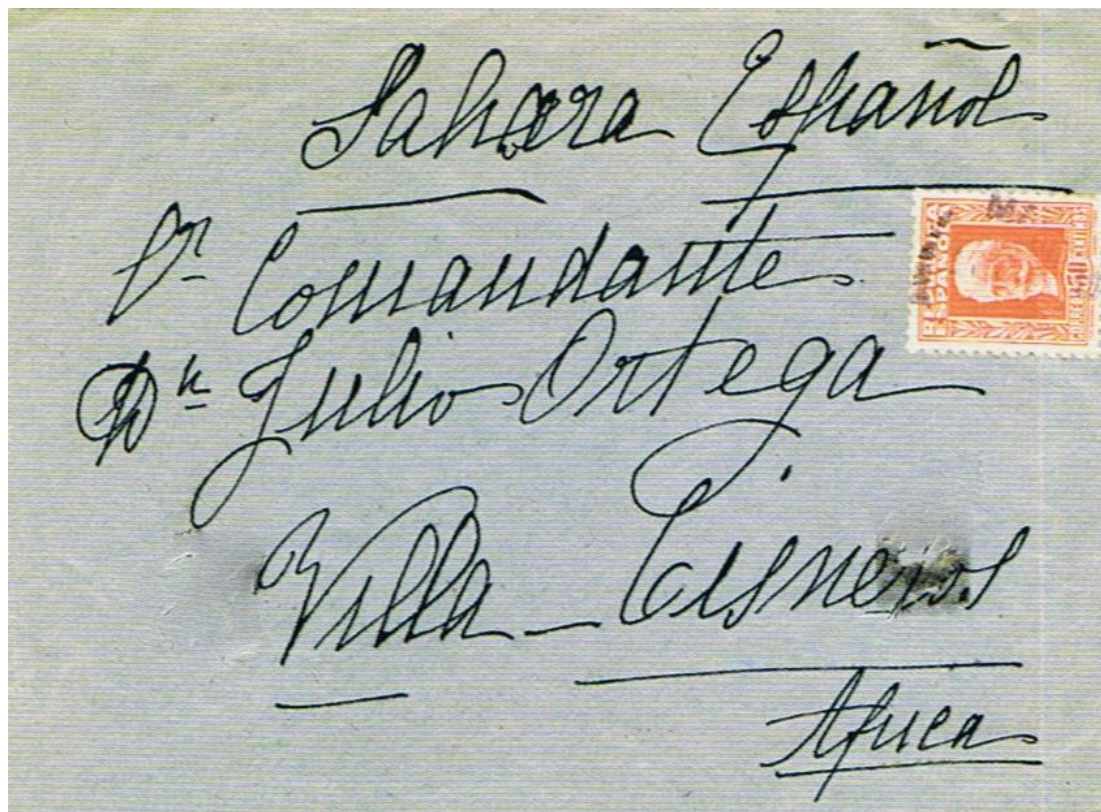 Sahara Español
Sr Comandante
Dn Julio Ortega
Villa - Cisneros
Africa
REPUBLICA
ESPAÑOLA
CORREOS 50 CENTIMOS